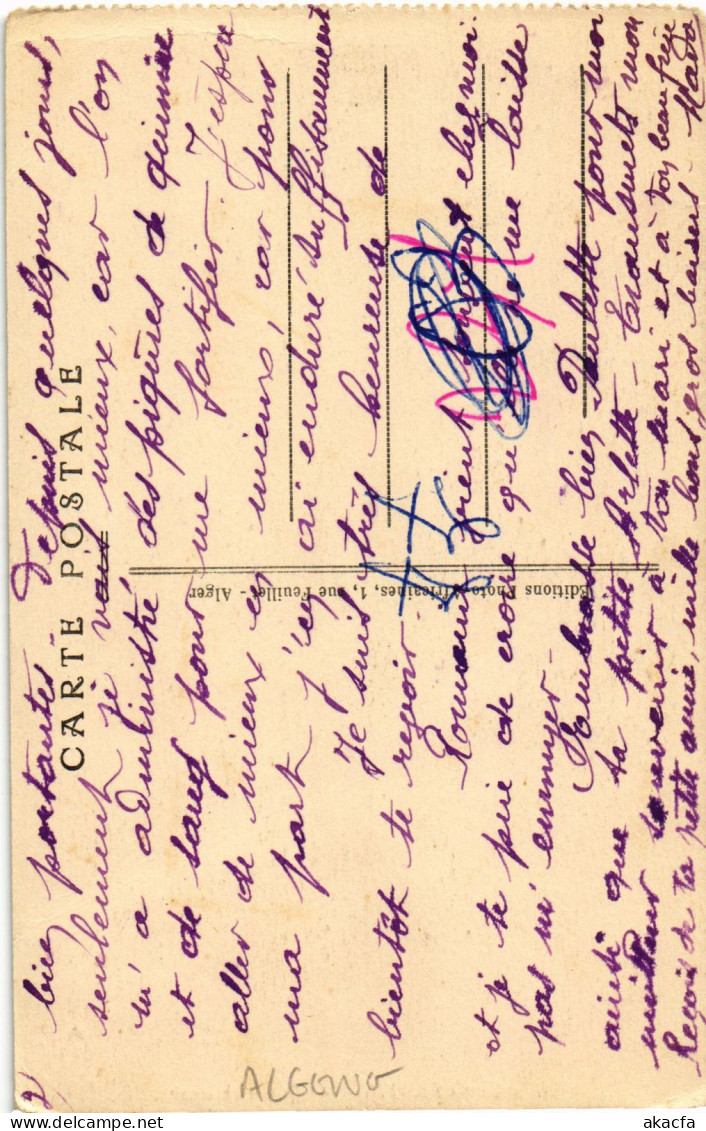 2)
bien portantes. Depuis quelques jours,
seulement je vais mieux, car l'on
m'a administré des piqûres de quinine
et de sang pour me fortifier. J'espère
aller de mieux en mieux, car pour
ma part j'en ai enduré suffisamment
Je suis très heureuse de
bientôt te revoir.
Romain vient souvent chez moi
et je te prie de croire qu'il ne me laisse
pas m'ennuyer.
Embrasse bien Paulette pour moi
ainsi que ta petite Arlette. Transmets mon
meilleur souvenir à ton mari et à ton beau frère
Reçois de ta petite amie, mille bons gros baisers. Mado
CARTE POSTALE
Editions Photo-Africaines, 1, rue Feuillet - Alger
akacfa
akacfa